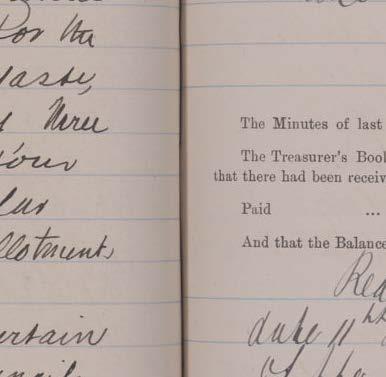 For the
Waste,
Three
Your
lar
llotment
ertain
The Minutes of last
The Treasurer's Book
that there had been receiv
Paid ...
And that the Balance
Read
date 11th
of the